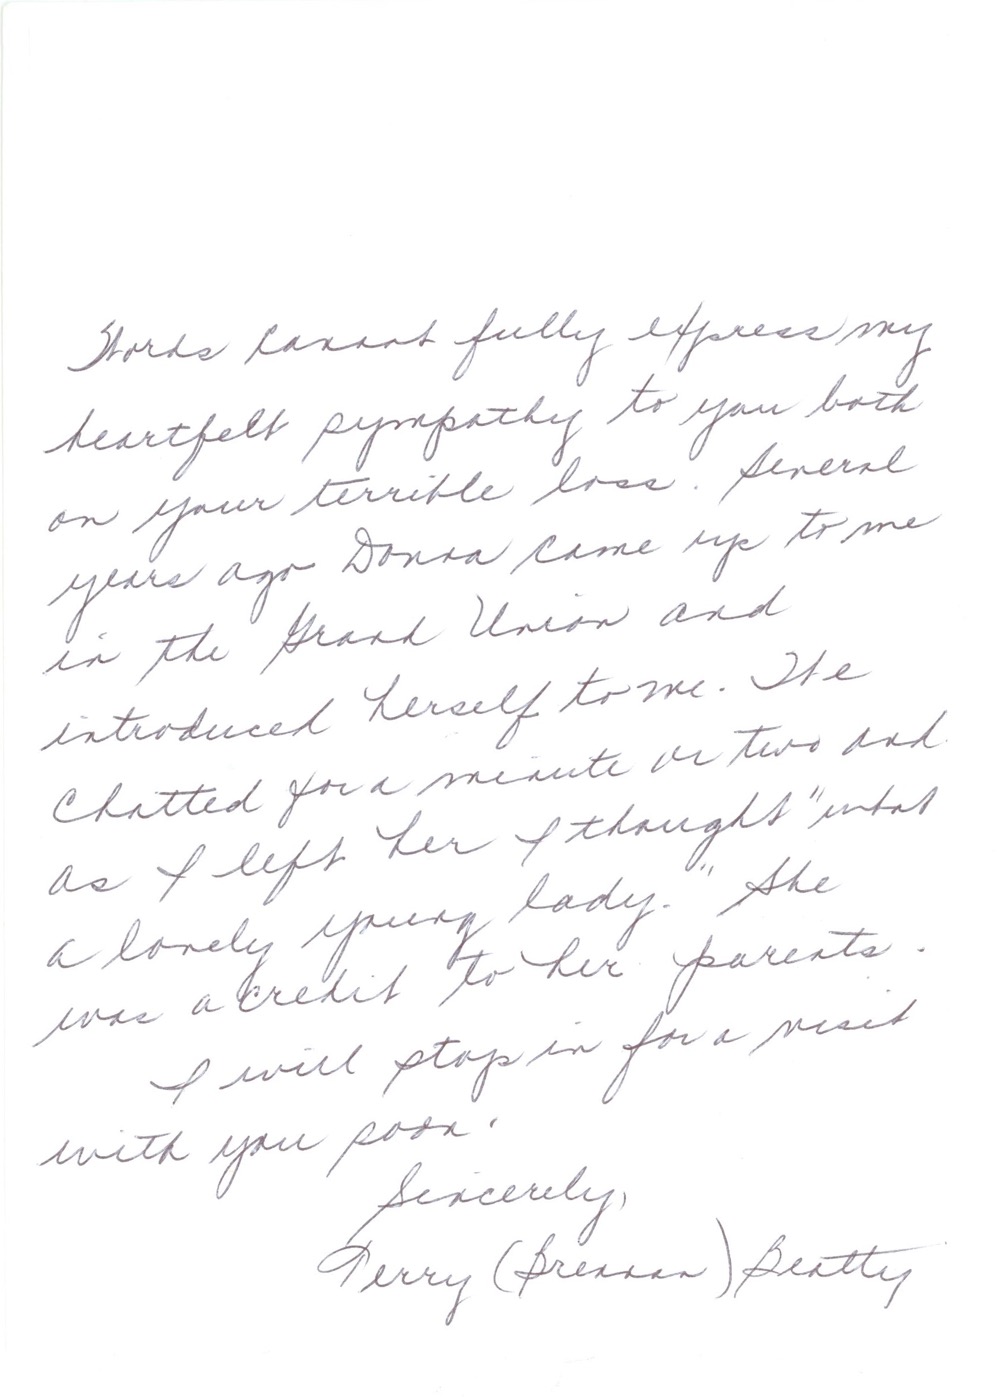 Words cannot fully express my
heartfelt sympathy to you both
on your terrible loss. Several
years ago Donna came up to me
in the Grand Union and
introduced herself to me. We
chatted for a minute or two and
as I left her I thought "what
a lovely young lady." She
was a credit to her parents.
I will stop in for a visit
with you soon.
Sincerely,
Terry (Brennan) Beatty